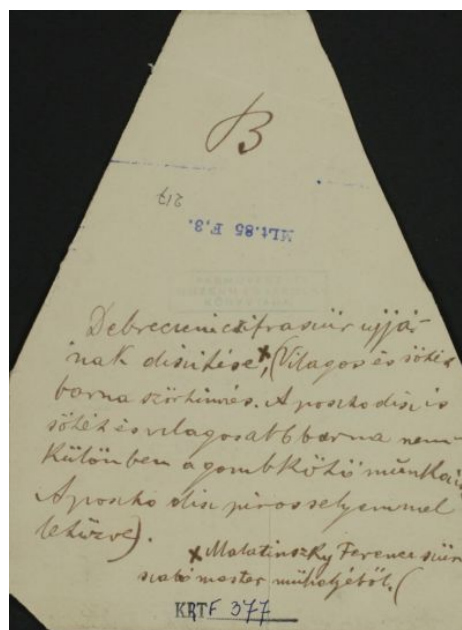 B
217
MLt.85 F,3.
Debreceni cifraszűr ujjá-
nak diszitése, x (Világos és sötét
barna szőrhimzés. A poszko disz is
sötét és világosabb barna nem-
különben a gombkötő munka is
A poszko disz piros selyemmel
letűzve).
x Malatinszky Ferenc szűr
szabó mester műhelyéből. (
KRTF 377